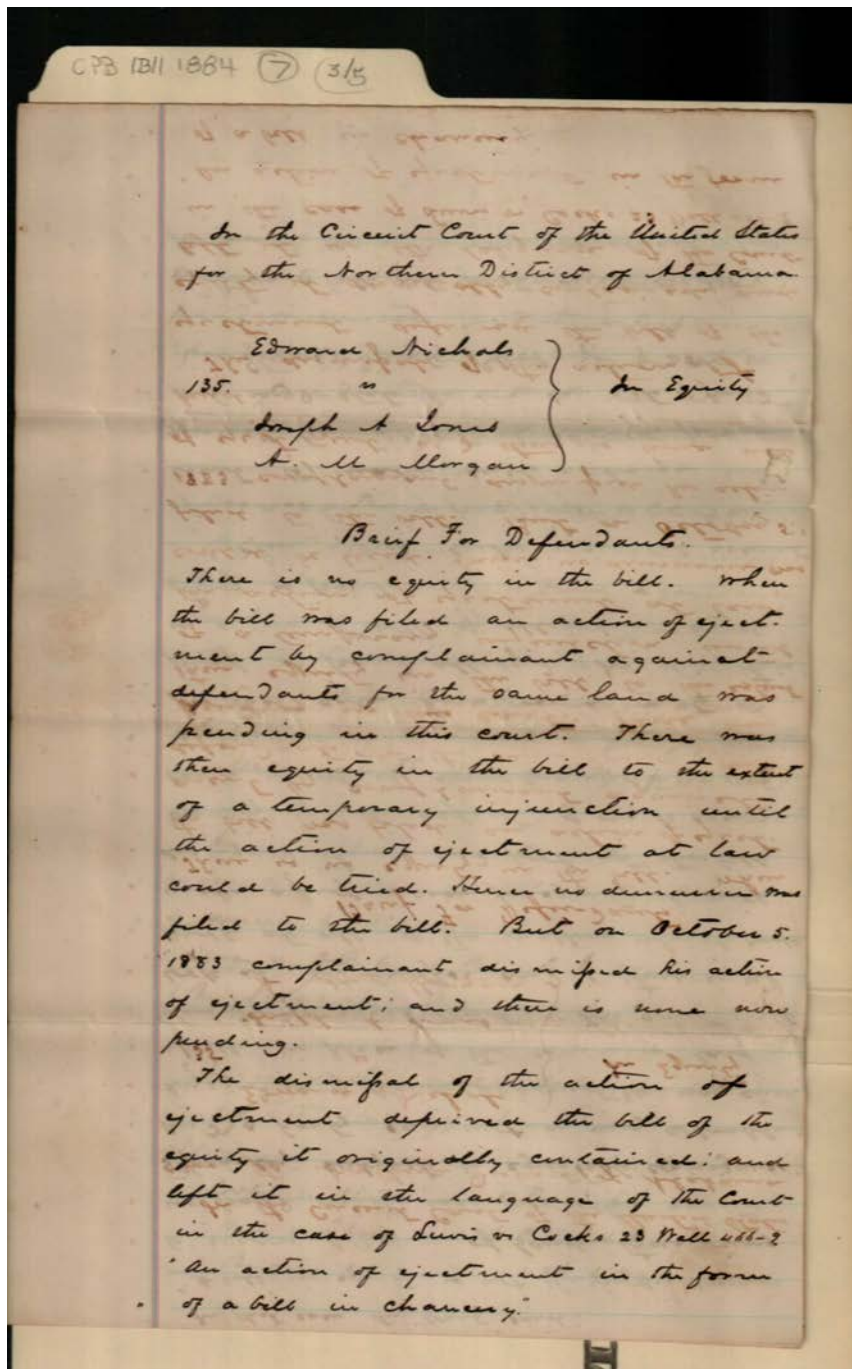 CPB IB11 1884 7 3/5
In the Circuit Court of the United States
for the Northern District of Alabama.
Edward Nichols
135. vs
Joseph A Jones
A. M Morgan
In Equity
Brief For Defendants.
There is no equity in the bill. When
the bill was filed an action of eject-
ment by complainant against
defendants for the same land was
pending in this court. There was
then equity in the bill to the extent
of a temporary injunction until
the action of ejectment at law
could be tried. Hence no demurrer was
filed to the bill. But on October 5.
1883 complainant dismissed his action
of ejectment; and there is none now
pending.
The dismissal of the action of
ejectment deprived the bill of the
equity it originally contained: and
left it in the language of the Court
in the case of Lewis vs Cocks 23 Wall
"An action of ejectment in the form
of a bill in chancery."